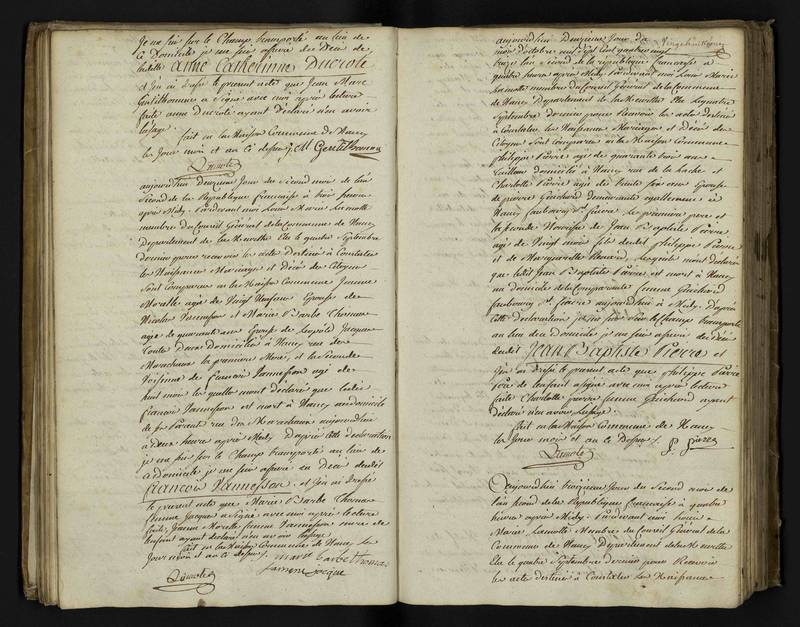 Je me suis sur le Champ transporté au lieu de
ce Domicile je me suis assuré du Décès de
ladite anne Catherinne Ducrole
et j'en ai Dressé le present acte que Jean Marc
Gentilhomme a Signé avec moi après lecture
faite anne ducrole ayant Déclaré n'en avoir
l'usage.
fait en la Maison Commune de Nancy
les Jour mois et an Ci dessus J. M. Gentilhomme
Lamotte
aujourdhui Deuxieme Jour du Second mois de l'an
Second de la République françaíse à trois heures
après Midy. Pardevant moi Louis Marie Lamotte
membre du Conseil Général de la Commune de Nancy
Departement de la Meurthe Elu le quatre Septembre
dernier pour recevoir les actes Destinés à Constater
les Naissance Mariage et Décès des Citoyens
Sont Comparus en la Maison Commune Jeanne
Morelle agée de Vingt Neuf ans Epouse de
Nicolas Vannesson et Marie Barbe Thomas
agée de quarante ans Epouse de Leopold Jacque
toutes Deux Domiciliées à Nancy rue des
Marechaux la premiere Mere, et la Seconde
Voisinne de françois Vannesson agé de
huit mois les quelles m'ont déclaré que ledit
françois Vannesson est mort à Nancy au domicile
de rue des Marechaux aujourdhui
à deux heures après Midy D'après cette déclaration
je me suis sur le Champ transporté au lieu de
ce domicile je me suis assuré du Décès dudit
francois Vannesson et j'en ai Dressé
le present acte que Marie Barbe Thomas
femme Jacque a Signé avec moi après lecture
faite, Jeanne Morelle femme Vannesson mere de
l'enfant ayant déclaré n'en avoir l'usage
fait en la Maison Commune de Nancy les
Jour mois et an Ci dessus /. marie barbe thomas
famme jacque
Lamotte
aujourdhui Deuxieme Jour du
mois d'octobre mil Sept cent quatre vingt
treize l'an Second de la république francaise à
quatre heures après Midy. Pardevant moi Louis Marie
Lamotte membre du Conseil Général de la Commune
de Nancy Departement de la Meurthe Elu le quatre
Septembre dernier pour Recevoir les actes destinés
à Constater les Naissance Mariages et Décès des
Citoyens Sont comparus en la Maison Commune
philippe Pierre agé de quarante trois ans
domicilié à Nancy rue de la hache et
Charlotte Pierre agée de trente six ans Epouse
de pierre Guichard Demeurante egallement à
Nancy faubourg St. fiacre Le premier pere et
la Seconde Nourisse de Jean Baptiste Pierre
agé de Vingt mois fils dudit philippe Pierre
et de Marguerite Renard, lesquels m'ont déclaré
que ledit Jean Baptiste Pierre est mort à Nancy
au domicile de la Comparante femme Guichard
faubourg St. fiacre aujourdhui à Midy. D'après
cette déclaration je me suis sur le Champ transporté
au lieu de ce Domicile je me suis assuré du décès
dudit Jean Baptiste Pierre et
j'en ai dressé le present acte que philippe Pierre
pere de l'enfant a signé avec moi après lecture
faite Charlotte pierre femme Guichard ayant
déclaré n'en avoir l'usage.
fait en la Maison Commune de Nancy
les Jour mois et an Ci Dessus /. P. pierre
Lamotte
aujourdhui troisieme Jour du Second mois de
l'an second de la République francaise à quatre
heures après Midy. Pardevant moi Louis
Marie Lamotte Membre du Conseil Général de la
Commune de Nancy Departement de la Meurthe
Elu le quatre Septembre dernier pour Recevoir
les actes destinés à Constater les Naissance